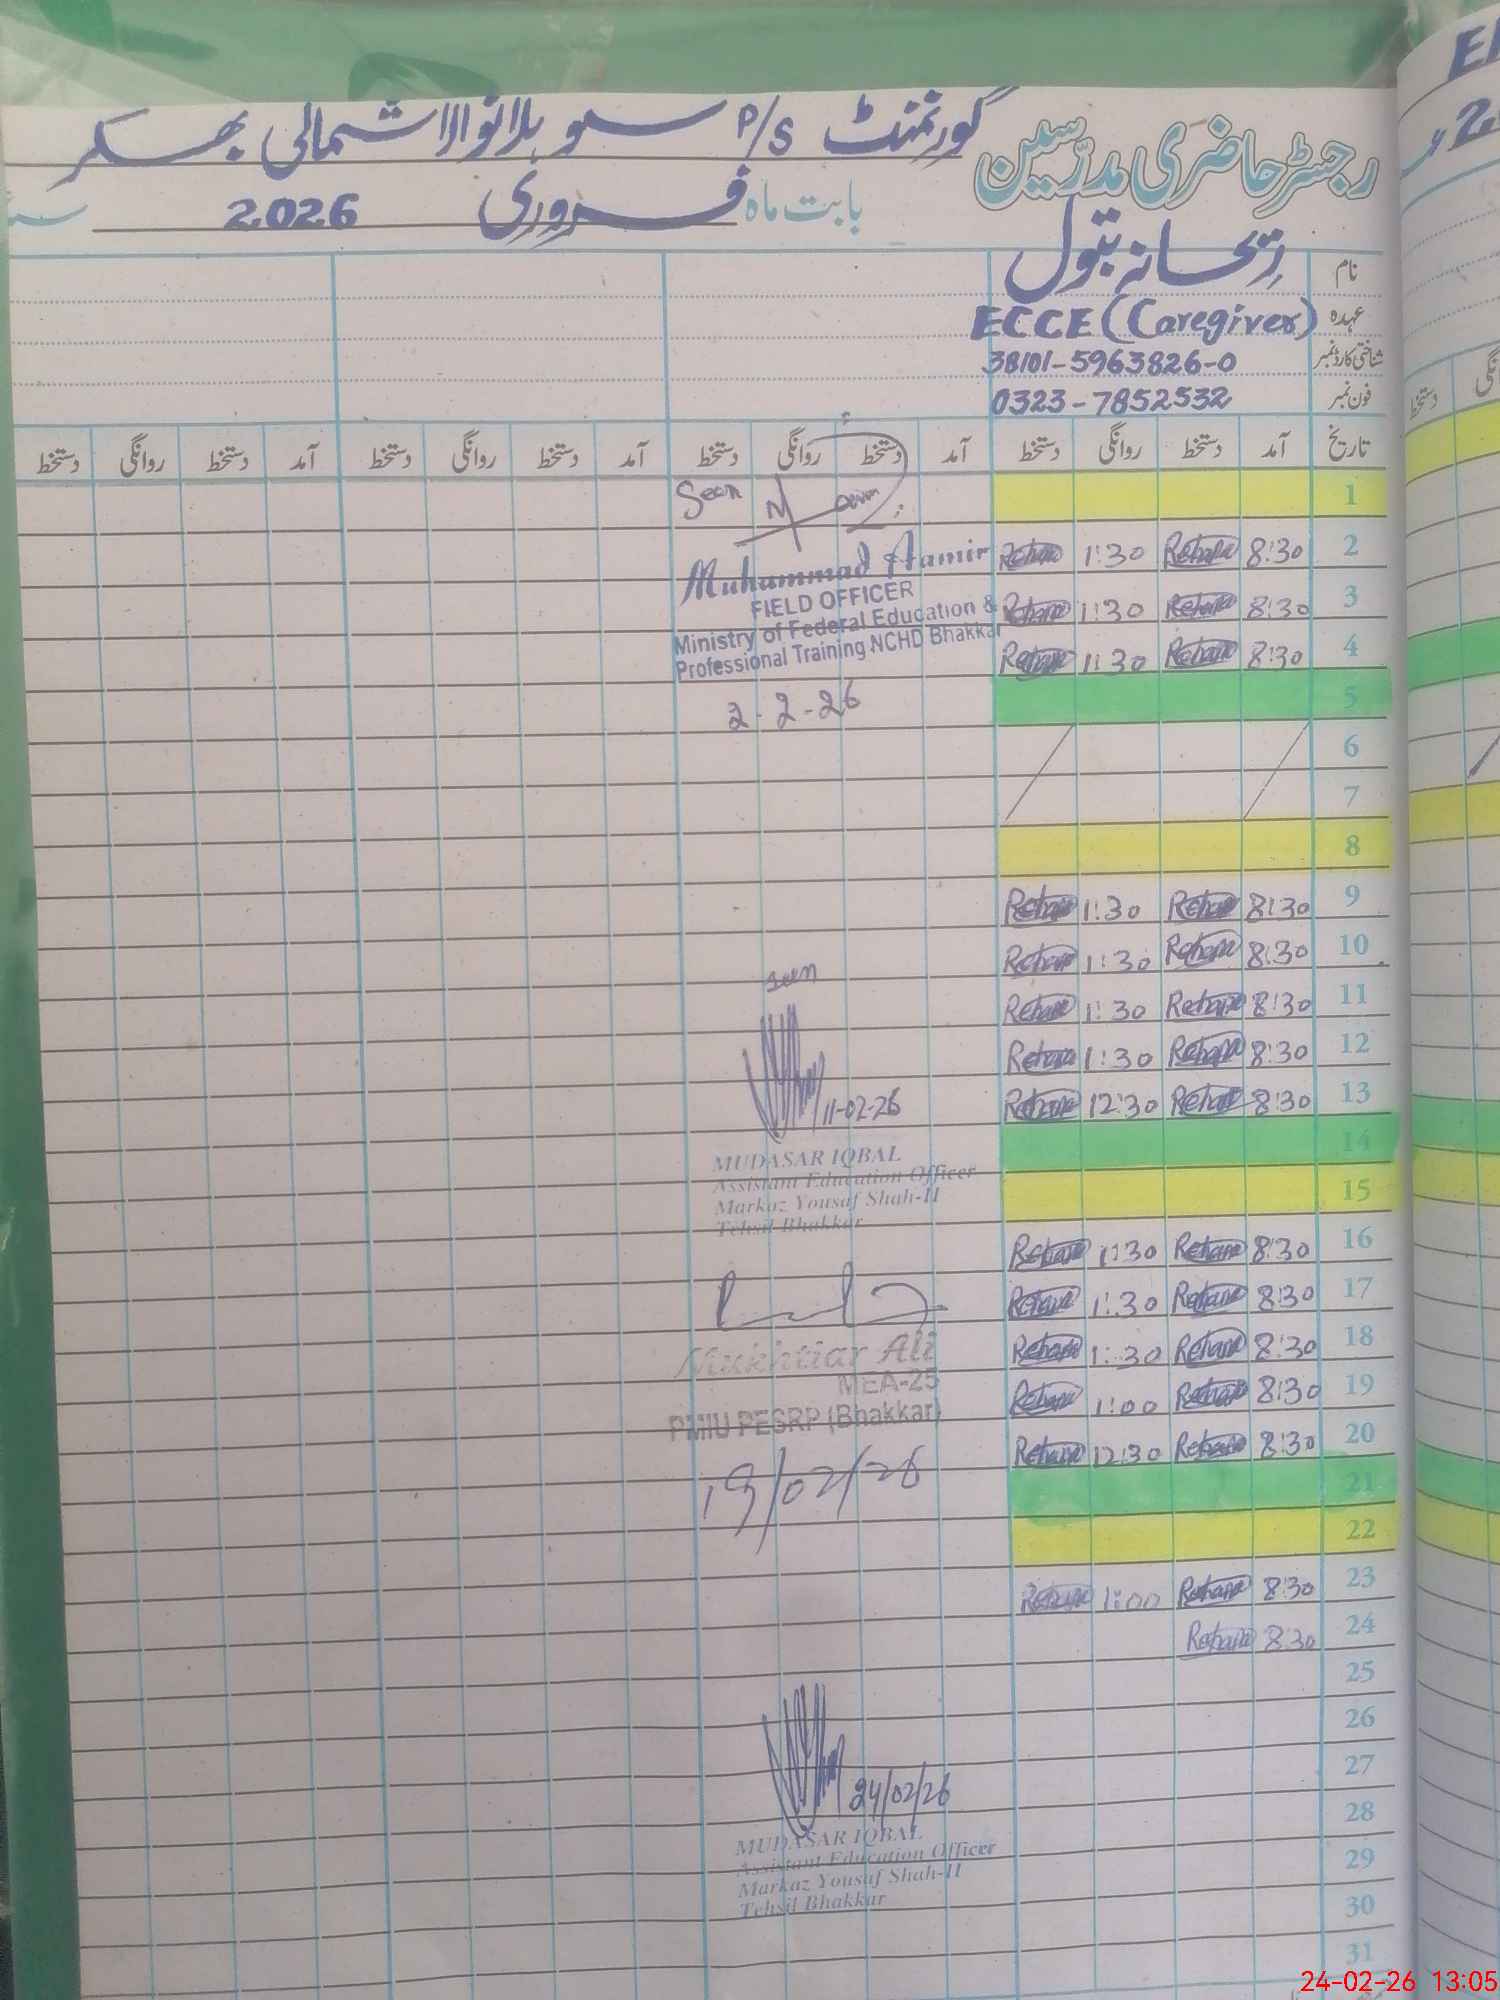 رجسٹر حاضری مدرسین گورنمنٹ P/S شمالی بھکر
بابت ماہ فروری 2026
نام ریحانہ بتول
عہدہ ECCE (Caregiver)
شناختی کارڈ نمبر 38101-5963826-0
فون نمبر 0323-7852532
تاریخ آمد دستخط روانگی دستخط آمد دستخط روانگی دستخط آمد دستخط روانگی دستخط آمد دستخط روانگی دستخط
1
Seen
2 8:30 Rehana 1:30 Rehana
Muhammad Aamir
FIELD OFFICER
Ministry of Federal Education &
Professional Training NCHD Bhakkar
2-2-26
3 8:30 Rehana 1:30 Rehana
4 8:30 Rehana 1:30 Rehana
5
6
7
8
9 8:30 Rehana 1:30 Rehana
10 8:30 Rehana 1:30 Rehana
11 8:30 Rehana 1:30 Rehana
12 8:30 Rehana 1:30 Rehana
13 8:30 Rehana 12:30 Rehana
seen
11-02-26
MUDASAR IQBAL
Assistant Education Officer
Markaz Yousaf Shah-II
Tehsil Bhakkar
14
15
16 8:30 Rehana 1:30 Rehana
17 8:30 Rehana 1:30 Rehana
18 8:30 Rehana 1:30 Rehana
19 8:30 Rehana 1:00 Rehana
20 8:30 Rehana 12:30 Rehana
Mukhtiar Ali
MEA-25
PMIU PESRP (Bhakkar)
19/02/26
21
22
23 8:30 Rehana 1:00 Rehana
24 8:30 Rehana
25
26
27
28
29
30
31
24/02/26
MUDASAR IQBAL
Assistant Education Officer
Markaz Yousaf Shah-II
Tehsil Bhakkar
24-02-26 13:05